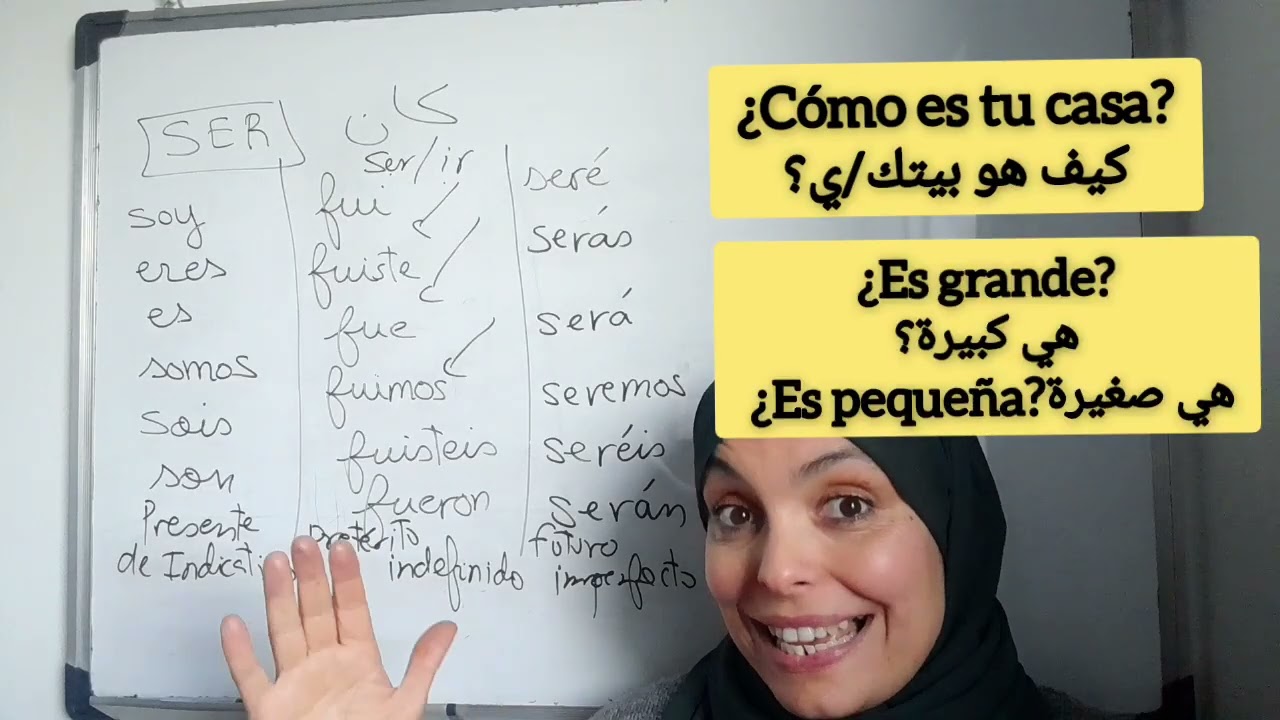 SER
كان
ser/ir
soy
eres
es
somos
sois
son
Presente
de Indicativo
fui
fuiste
fue
fuimos
fuisteis
fueron
Pretérito
indefinido
seré
serás
será
seremos
seréis
serán
futuro
imperfecto
¿Cómo es tu casa?
كيف هو بيتك/ي؟
¿Es grande?
هي كبيرة؟
¿Es pequeña?هي صغيرة